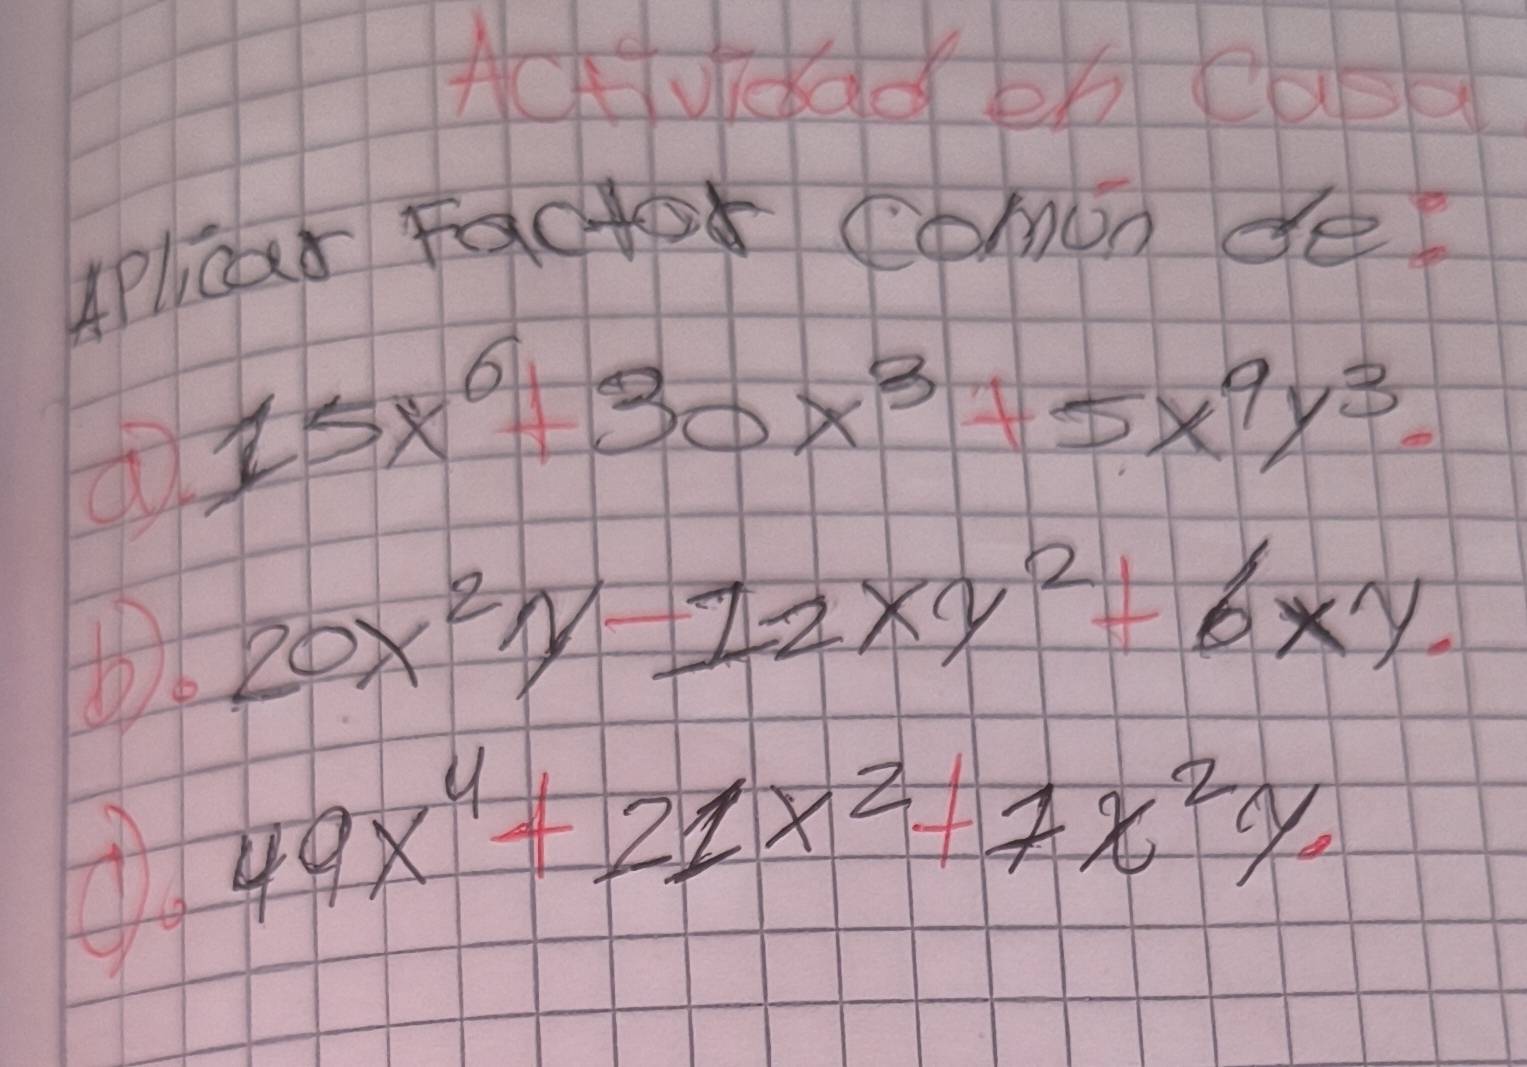 Actividad en Casa
Aplicar Factor Común de:
a). 15x⁶ + 30x³ + 5x⁹y³.
b). 20x²y - 12xy² + 6xy.
c). 49x⁴ + 21x² + 7x²y.